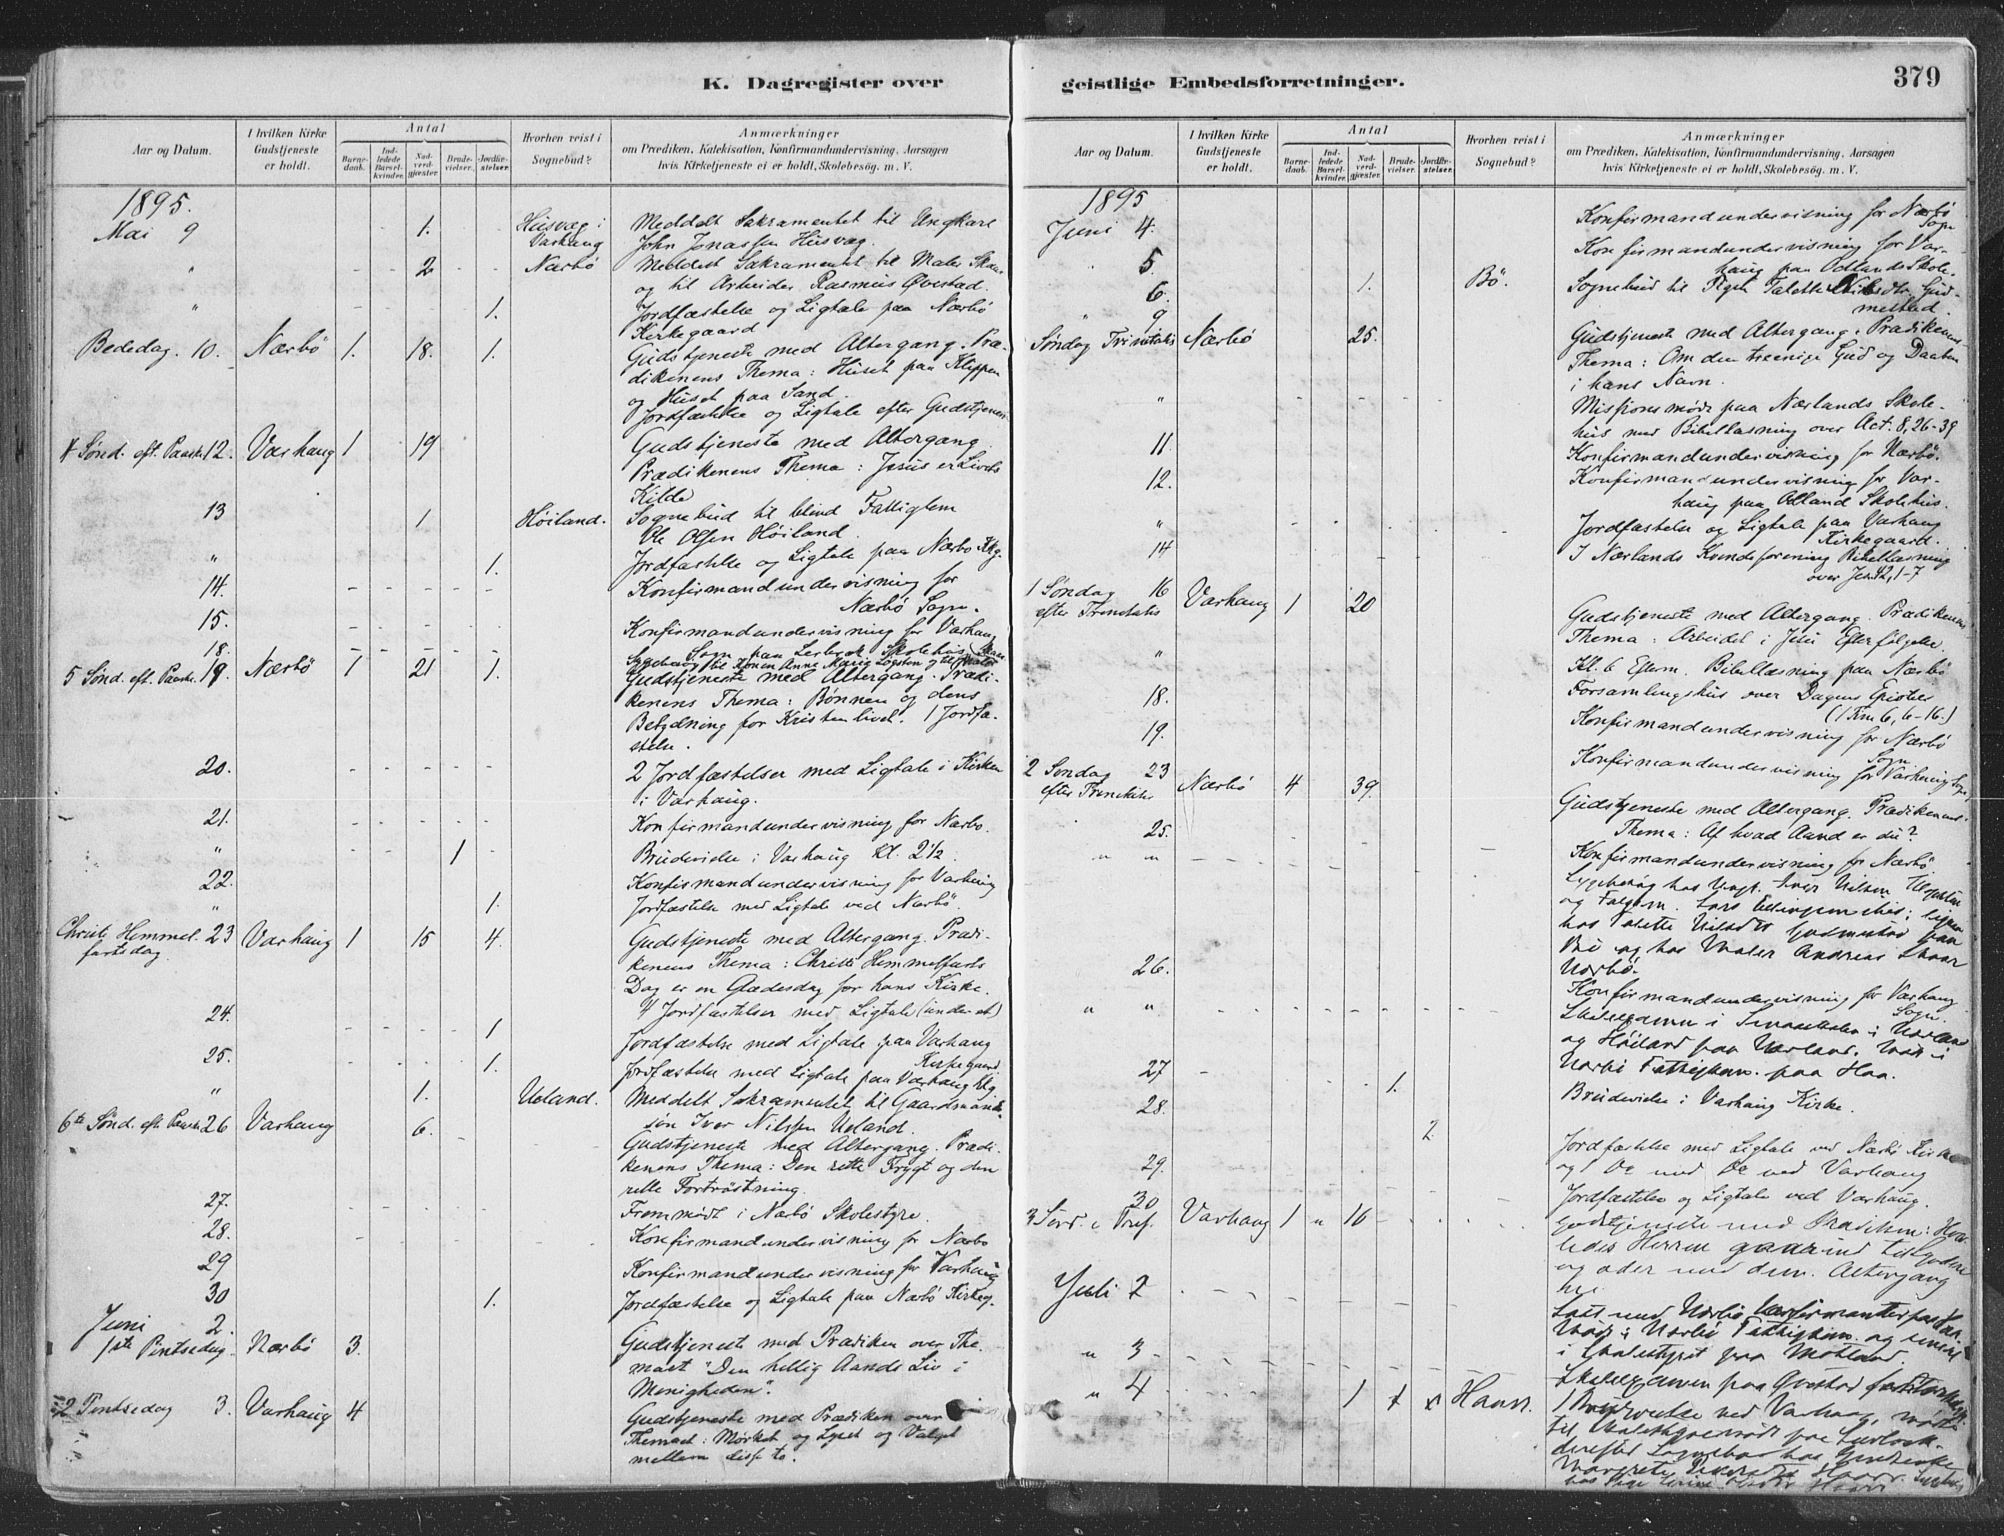 K. Dagregister over
Aar og Datum.
I hvilken Kirke Gudstjeneste er holdt.
Antal
Barnedaab.
Indledede Barselkvinder.
Nadverdgjæster.
Brudevielser.
Jordfæstelser.
Hvorhen reist i Sognebud?
Anmærkninger
om Prædiken, Katekisation, Konfirmandundervisning, Aarsagen
hvis Kirketjeneste ei er holdt, Skolebesøg. m. V.
1895.
Mai 9 1. Husvæg i Meddelt Sakramentet til Ungkarl
Varhaug John Jonassen Husvæg.
" 2 Nærbö Meddelt Sakramentet til Maler Skaar
og til Arbeider Rasmus Øvestad.
" 1. Jordfæstelse og Ligtale paa Nærbö
Kirkegaard
Bededag. 10. Nærbö 1. 18. 1. Gudstjeneste med Altergang. Præ-
dikenens Thema: Huset paa Klippen
og Huset paa Sand.
1 Jordfæstelse og Ligtale efter Gudstjenesten
4 Sønd. eft. Paaske 12. Varhaug 1 19 Gudstjeneste med Altergang.
Prædikenens Thema: Jesus er Livets
Kilde
13 1 Höiland. Sognebud til blind Fattiglem
Ole Olsen Höiland.
" 1. Jordfæstelse og Ligtale paa Nærbö Kkg.
14. Konfirmandundervisning for
Nærbö Sogn.
15. Konfirmandundervisning for Varhaug
Sogn paa Skolehus
18. Sygebesøg til Konen Anne Marie
5 Sønd. eft. Paaske 19. Nærbö 1 21 1. Gudstjeneste med Altergang. Prædi-
kenens Thema: Bønnen og dens
Betydning for Kristenlivet. 1 Jordfæ-
stelse.
20. 2 Jordfæstelser med Ligtale i Kirken
i Varhaug.
21. Konfirmandundervisning for Nærbö.
" 1 Brudevielse i Varhaug Kl. 2 1/2.
22. Konfirmandundervisning for Varhaug
" 1. Jordfæstelse med Ligtale ved Nærbö.
Christi Himmel- 23 Varhaug 1 15 4. Gudstjeneste med Altergang. Prædi-
fartsdag kenens Thema: Christi Himmelfarts
Dag er en Glædesdag for hans Kirke.
4 Jordfæstelser med Ligtale (under et)
24. 1 Jordfæstelse med Ligtale paa Varhaug
Kirkegaard.
25. 1. Jordfæstelse med Ligtale paa Varhaug Kkg
" 1. Ueland. Meddelt Sakramentet til Gaardmand-
søn Iver Nilssen Ueland.
6te Sønd. eft. Paaske 26 Varhaug 6. Gudstjeneste med Altergang. Prædi-
kenens Thema: Den rette Frygt og den
rette Fortröstning.
27. Fremmödt i Nærbö Skolestyre.
28. Konfirmandundervisning for Nærbö
29 Konfirmandundervisning for Varhaug
30 1. Jordfæstelse og Ligtale paa Nærbö Kirkeg.
Juni 2.
1ste Pintsedag. Nærbö 3. Gudstjeneste med Prædiken over The-
maet "Den hellig Aands Liv i
Menigheden".
2 Pintsedag 3. Varhaug 4 Gudstjeneste med Prædiken over
Themaet: Mørket og Lyset og Valget
mellem disse to.
geistlige Embedsforretninger.
379
Aar og Datum.
I hvilken Kirke Gudstjeneste er holdt.
Antal
Barnedaab.
Indledede Barselkvinder.
Nadverdgjæster.
Brudevielser.
Jordfæstelser.
Hvorhen reist i Sognebud?
Anmærkninger
om Prædiken, Katekisation, Konfirmandundervisning, Aarsagen
hvis Kirketjeneste ei er holdt, Skolebesøg. m. V.
1895
Juni 4. Konfirmandundervisning for Nærbö
Sogn
5. Konfirmandundervisning for Var-
haug paa Odlands Skole.
6. 1. Bö. Sognebud til Pigen Talette Gud-
mestad.
" 9
Søndag Trinitatis Nærbö 25. Gudstjeneste med Altergang. Prædikenens
Thema: Om den treenige Gud og Daaben
i hans Navn.
" Missionsmöde paa Nærlands Skole-
hus med Bibellæsning over Act. 8, 26-39
11. Konfirmandundervisning for Nærbö.
12. Konfirmandundervisning for Var-
haug paa Odland Skolehus.
" Jordfæstelse og Ligtale paa Varhaug
Kirkegaard.
14 I Nærlands Kvindeforening Bibellæsning
over Jes. 42, 1-7
1 Søndag 16 Varhaug 1 20 Gudstjeneste med Altergang. Prædikenens
efter Trinitatis Thema: Arbeidet i Jesu Efterfölgelse.
" Kl. 6 Efterm. Bibellæsning paa Nærbö
Forsamlingshus over Dagens Epistel
(1 Tim 6, 6-16.)
18. Konfirmandundervisning for Nærbö
Sogn.
19. Konfirmandundervisning for Varhaug Sogn.
2 Søndag 23 Nærbö 4 39. Gudstjeneste med Altergang. Prædikenens
efter Trinitatis Thema: Af hvad Aand er du?
25. Konfirmandundervisning for Nærbö
" " Sygebesøg hos Ungk. Iver Nilsen
og Lars
hos Talette Gudmestad paa
Bö og hos Maler Andreas Skaar
Nærbö.
26. Konfirmandundervisning for Varhaug
Sogn.
" " Skoleexamen i Smaaskolen i Nærland
og Höiland paa Nærland. Möde i
Nærbö Fattigkom. paa Haa.
27 1. Brudevielse i Varhaug Kirke.
28. 2 Jordfæstelse med Ligtale ved Nærbö Kirke
og 1 Do med Do ved Varhaug
29. Jordfæstelse og Ligtale ved Varhaug.
30
3 Sønd. e. Tref. Varhaug 1 " 16 Gudstjeneste med Prædiken: Hvor-
ledes Herren gaar ind til Syndere
og æder med dem. Altergang
Juli 2 Læst med Nærbö Konfirmanter paa Haa.
Möde i Nærbö Fattigkom. og
i Skolestyret paa Motland.
" 3 Skoleexamen paa Qvestad
" 4 1 1 Haarr. 1 Brudevielse ved Varhaug, möde
til paa
derefter Sognebud hos
Margrete Haarr.